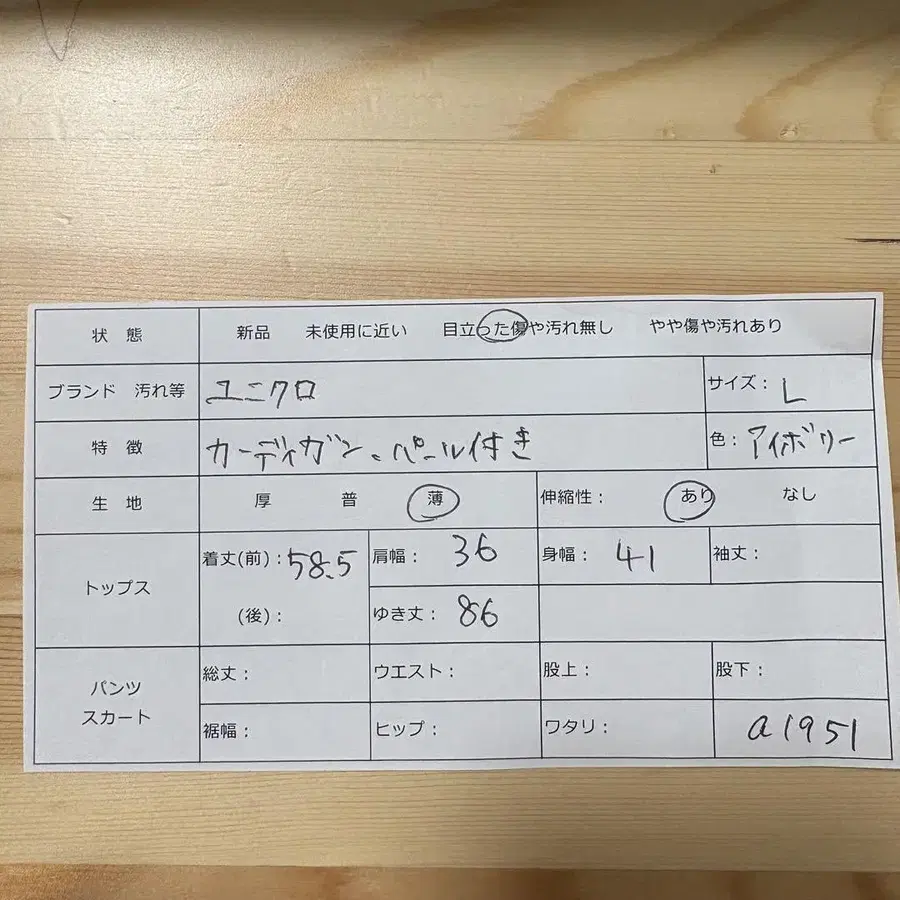 状 態 新品 未使用に近い 目立った傷や汚れ無し やや傷や汚れあり
ブランド 汚れ等 ユニクロ サイズ: L
特 徴 カーディガン、パール付き 色: アイボリー
生 地 厚 普 薄 伸縮性: あり なし
トップス 着丈(前): 58.5 肩幅: 36 身幅: 41 袖丈:
(後): ゆき丈: 86
パンツ スカート 総丈: ウエスト: 股上: 股下:
裾幅: ヒップ: ワタリ: a1951